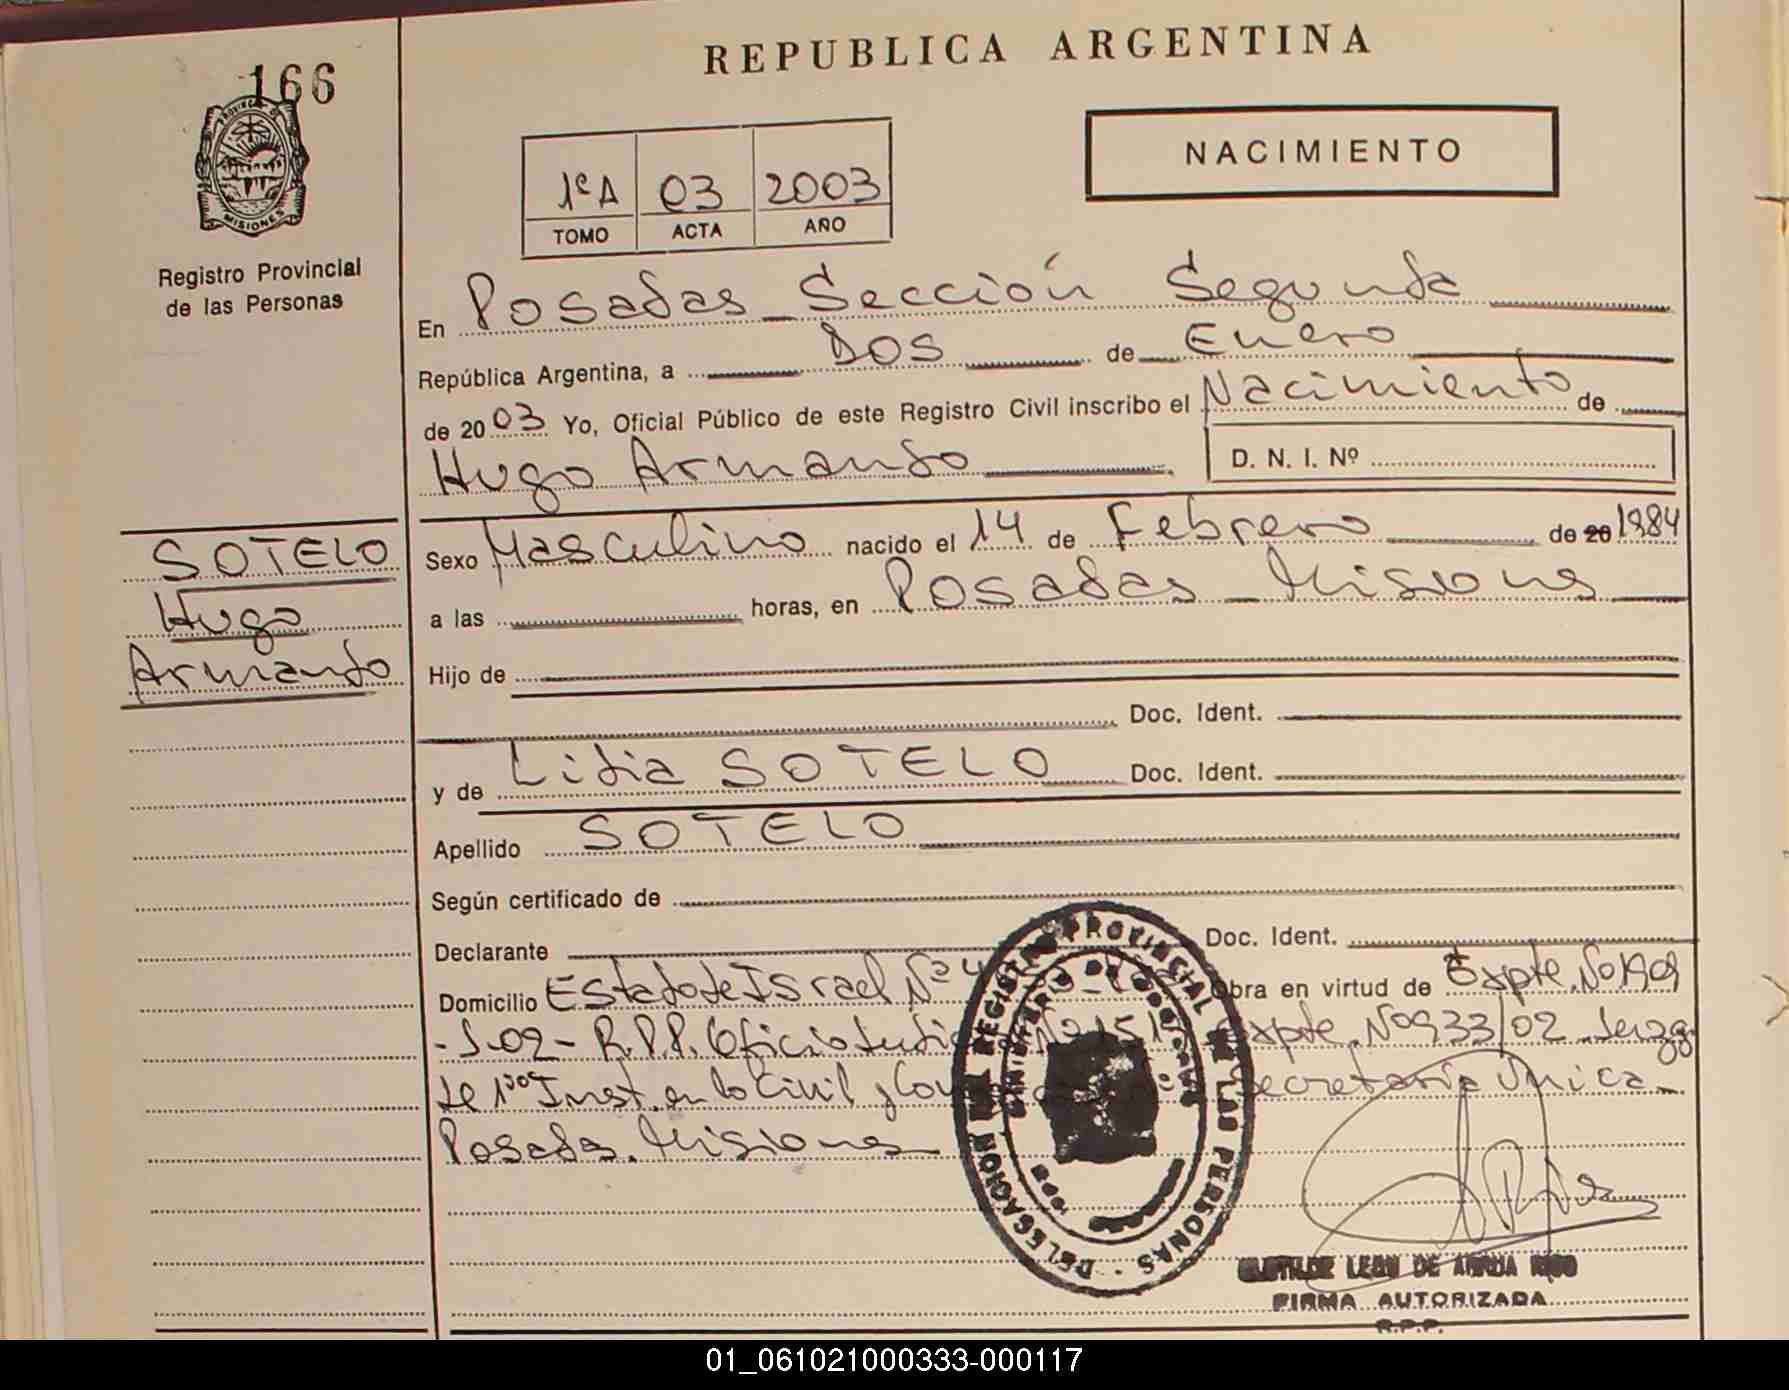 166
PROVINCIA DE
MISIONES
Registro Provincial
de las Personas
SOTELO
Hugo
Armando
REPUBLICA ARGENTINA
NACIMIENTO
1ºA 03 2003
TOMO ACTA AÑO
En Posadas - Sección Segunda
República Argentina, a Dos de Enero
de 2003 Yo, Oficial Público de este Registro Civil inscribo el Nacimiento de
Hugo Armando D. N. I. Nº
Sexo Masculino nacido el 14 de Febrero de 20 1984
a las horas, en Posadas - Misiones
Hijo de
Doc. Ident.
y de Lidia SOTELO Doc. Ident.
Apellido SOTELO
Según certificado de
Declarante Doc. Ident.
Domicilio Estado de Israel Nº Obra en virtud de Expte. Nº
-S-02- R.P.P. Oficio Expte. Nº 933/02
de 1º Inst. en lo Civil y Secretaría Unica -
Posadas. Misiones
DELEGACION DEL REGISTRO PROVINCIAL DE LAS PERSONAS
MINISTERIO DE GOBIERNO
CLOTILDE LEON DE
FIRMA AUTORIZADA
R.P.P.
01_061021000333-000117